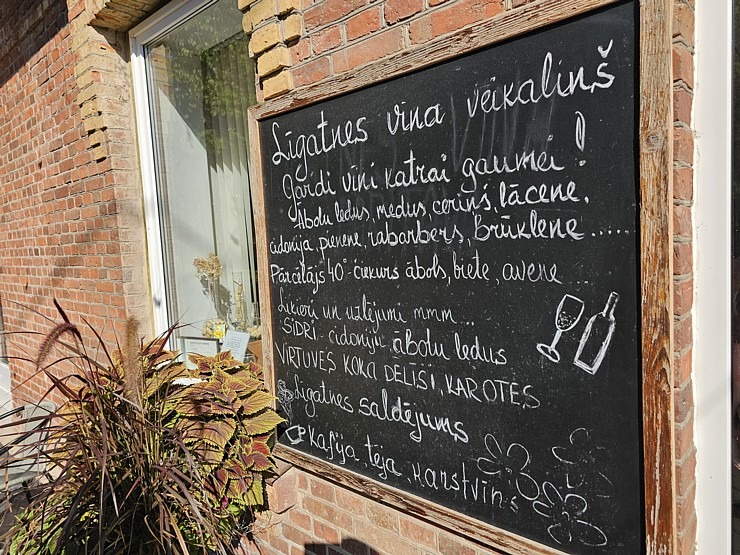 Līgatnes vīna veikaliņš
Gardi vīni katrai gaumei!
Ābolu ledus, medus, ceriņš, lācene,
cidonija, pienene, rabarbers, Brūklene.....
Pārcēlājs 40° - čiekurs ābols, biete, avene ...
Liķieri un uzlējumi mmm...
SIDRI - cidoniju ābolu ledus
VIRTUVES KOKA DĒLĪŠI, KAROTES
Līgatnes saldējums
Kafija tēja, Karstvīns